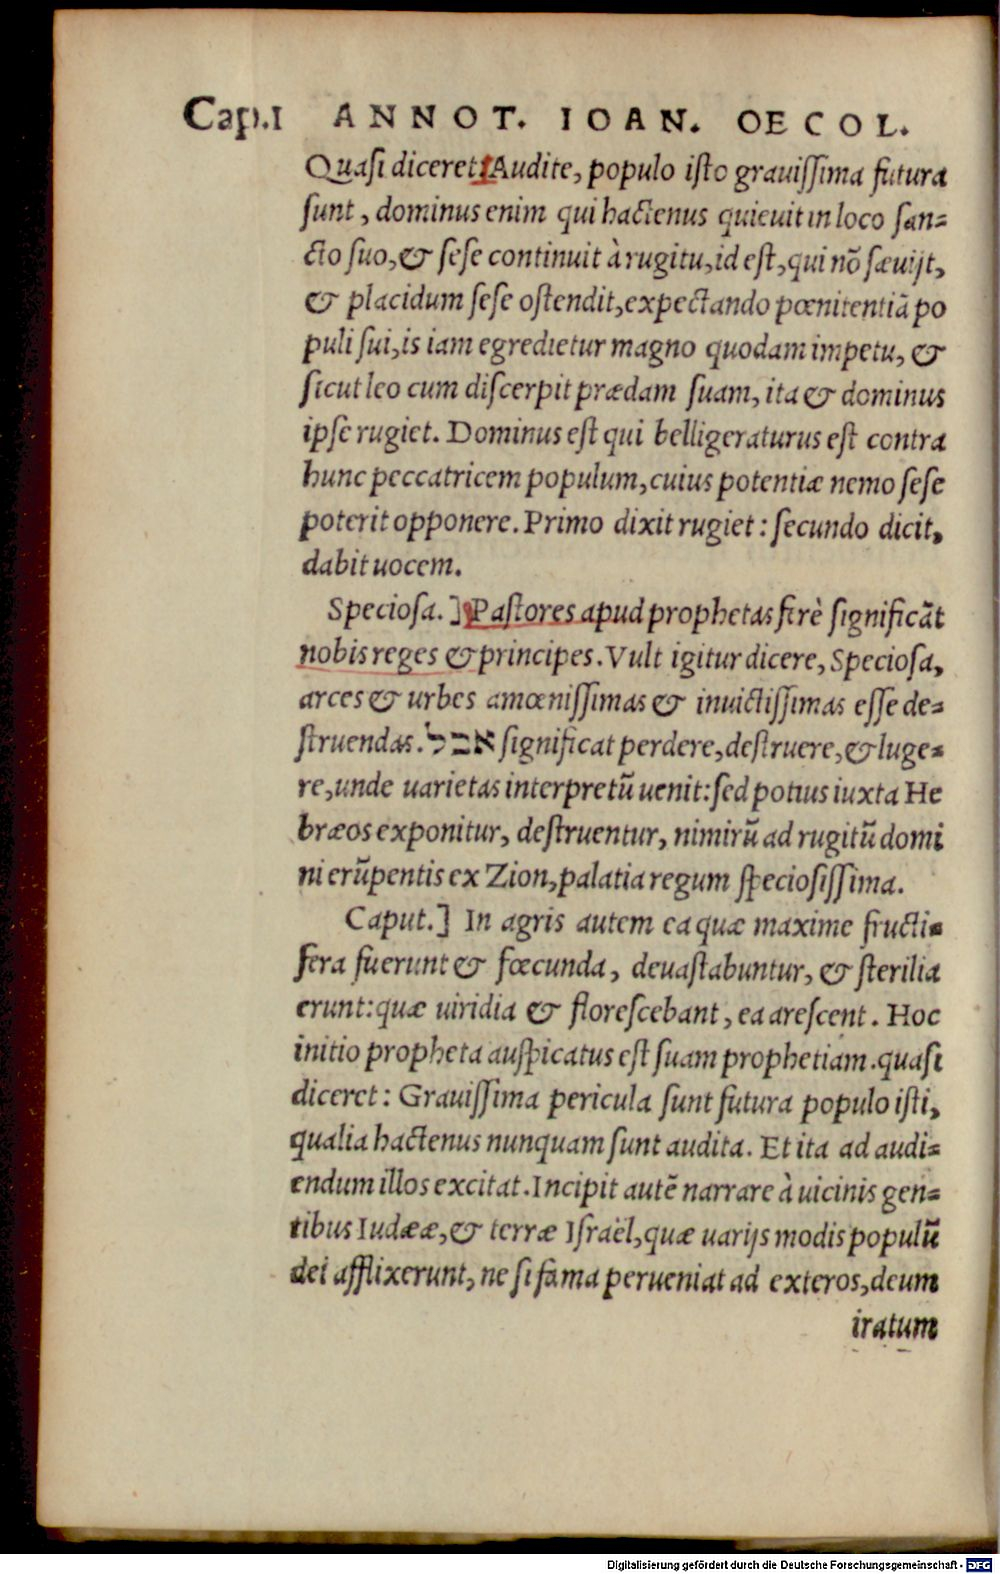 Cap.I ANNOT. IOAN. OECOL.
Quasi diceret: Audite, populo isto grauissima futura
sunt, dominus enim qui hactenus quieuit in loco san-
cto suo, & sese continuit à rugitu, id est, qui nõ sæuijt,
& placidum sese ostendit, expectando pœnitentiã po
puli sui, is iam egredietur magno quodam impetu, &
sicut leo cum discerpit prædam suam, ita & dominus
ipse rugiet. Dominus est qui belligeraturus est contra
hunc peccatricem populum, cuius potentiæ nemo sese
poterit opponere. Primo dixit rugiet: secundo dicit,
dabit uocem.
Speciosa.] Pastores apud prophetas ferè significãt
nobis reges & principes. Vult igitur dicere, Speciosa,
arces & urbes amœnissimas & inuictissimas esse de-
struendas. אבל significat perdere, destruere, & luge-
re, unde uarietas interpretũ uenit: sed potius iuxta He
bræos exponitur, destruentur, nimirũ ad rugitũ domi
ni erũpentis ex Zion, palatia regum speciosissima.
Caput.] In agris autem ea quæ maxime fructi-
fera fuerunt & fœcunda, deuastabuntur, & sterilia
erunt: quæ uiridia & florescebant, ea arescent. Hoc
initio propheta auspicatus est suam prophetiam. quasi
diceret: Grauissima pericula sunt futura populo isti,
qualia hactenus nunquam sunt audita. Et ita ad audi-
endum illos excitat. Incipit autẽ narrare à uicinis gen-
tibus Iudææ, & terræ Israël, quæ uarijs modis populũ
dei afflixerunt, ne si fama perueniat ad exteros, deum
iratum
Digitalisierung gefördert durch die Deutsche Forschungsgemeinschaft - DFG